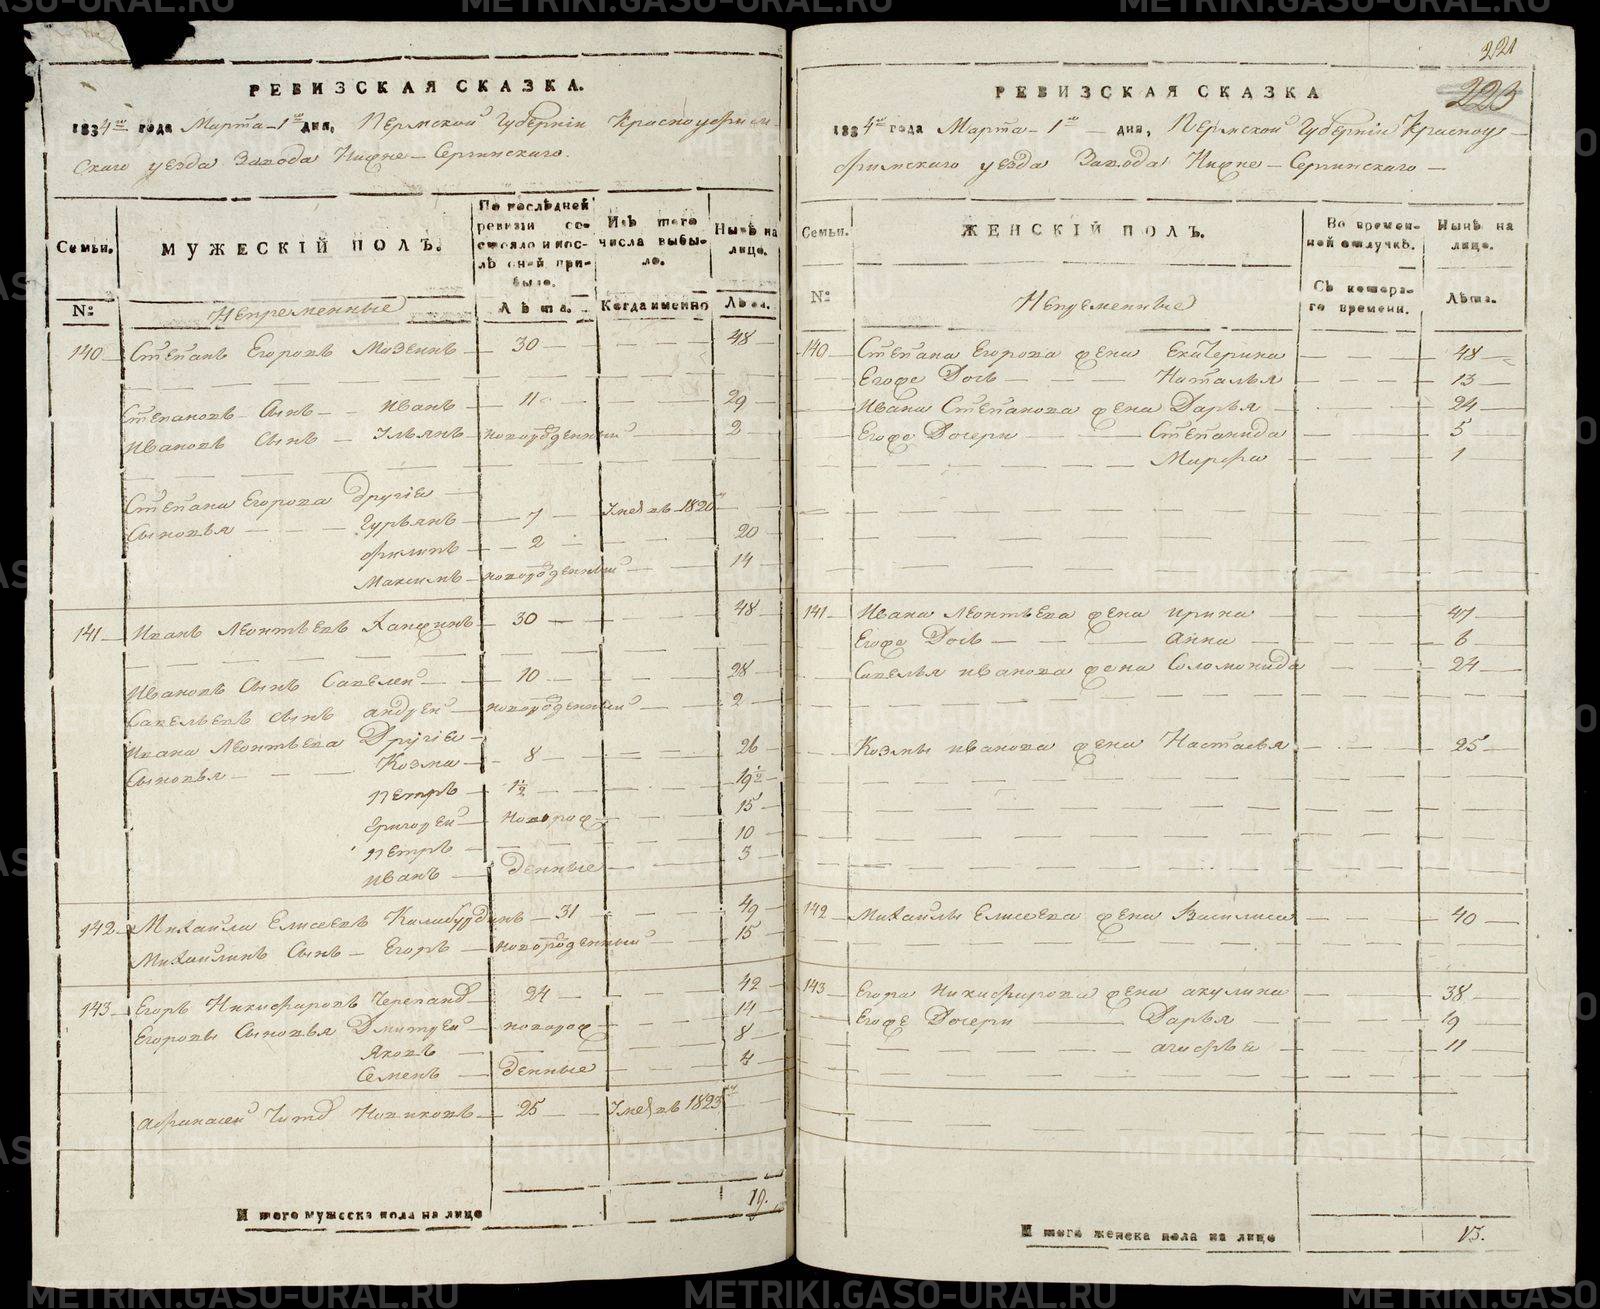 РЕВИЗСКАЯ СКАЗКА.
1834го года Марта 1го дня, Пермской Губернии Красноуфим-
скаго уезда Завода Нижне-Сергинскаго.
Семьи.
МУЖЕСКІЙ ПОЛЪ.
По последней ревизіи состояло и послѣ оней прибыло.
Изъ того числа выбыло.
Нынѣ на лицо.
№
Непременные
Лѣта.
Когда именно
Лѣта.
140 Степанъ Егоровъ Мозеинъ 30 48
Степановъ Сынъ Иванъ 11 29
Ивановъ Сынъ Ульянъ новорожденный 2
Степана Егорова Другіе
Сыновья Гурьянъ 7 Умеръ в 1820
Филипъ 2 20
Максимъ новорожденный 14
141 Иванъ Леонтьевъ Ханжинъ 30 48
Ивановъ Сынъ Савелей 10 28
Савельевъ Сынъ Андрей новорожденный 2
Ивана Леонтьева Другіе
Сыновья Козма 8 26
Петръ 1½ 19½
Григорей новорож 15
Петръ 10
Иванъ денные 3
142 Михайла Елисеевъ 31 49
Михайлинъ Сынъ Егоръ новорожденный 15
143 Егоръ Никифоровъ 24 42
Егоровы Сыновья Дмитрей новорож 14
Яковъ 8
Семенъ денные 4
Афанасей Новиковъ 25 Умеръ в 1823
Итого мужеска пола на лицо 19.
221
223
РЕВИЗСКАЯ СКАЗКА
1834го года Марта 1го дня, Пермской Губернии Красноу-
фимскаго уезда Завода Нижне-Сергинскаго
Семьи.
ЖЕНСКІЙ ПОЛЪ.
Во временной отлучкѣ.
Нынѣ на лицо.
№
Непременные
Съ котораго времени.
Лѣта.
140 Степана Егорова жена Екатерина 48
Егоже Дочь Наталья 13
Ивана Степанова жена Дарья 24
Егоже Дочери Степанида 5
Марфа 1
141 Ивана Леонтьева жена Ирина 47
Егоже Дочь Анна 6
Савелья Иванова жена Соломонида 24
Козмы Иванова жена Настасья 25
142 Михайлы Елисеева жена Василиса 40
143 Егора Никифорова жена Акулина 38
Егоже Дочери Дарья 19
11
Итого женска пола на лицо 13.
METRIKI.GASO-URAL.RU